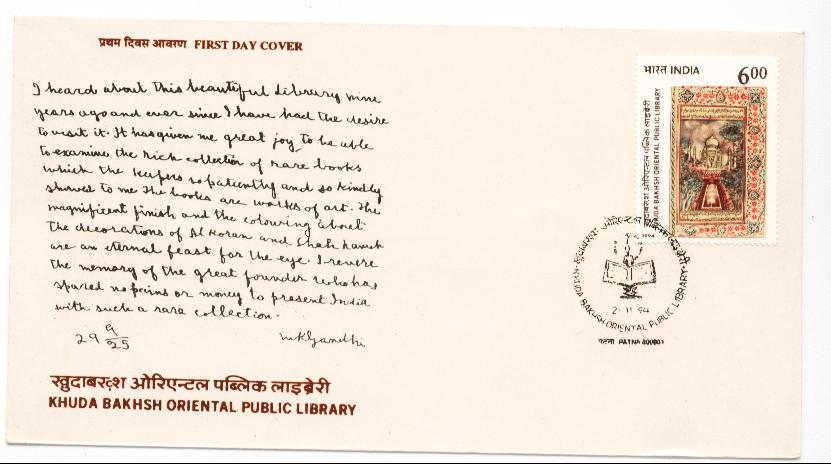 प्रथम दिवस आवरण FIRST DAY COVER
I heard about this beautiful library nine
years ago and ever since I have had the desire
to visit it. It has given me great joy to be able
to examine the rich collection of rare books
which the keepers so patiently and so kindly
showed to me The books are works of art. The
magnificent finish and the colouring about
the decorations of Al Koran and Shah Nameh
are an eternal feast for the eye. I revere
the memory of the great founder who has
spared no pains or money to present India
with such a rare collection.
29 9/25 MKGandhi
खुदाबख़्श ओरिएन्टल पब्लिक लाइब्रेरी
KHUDA BAKHSH ORIENTAL PUBLIC LIBRARY
भारत INDIA 600
खुदाबख़्श ओरिएन्टल पब्लिक लाइब्रेरी
KHUDA BAKHSH ORIENTAL PUBLIC LIBRARY
1994
खुदाबख़्श ओरिएन्टल पब्लिक लाइब्रेरी
KHUDA BAKHSH ORIENTAL PUBLIC LIBRARY
21 11 94
पटना PATNA 800001